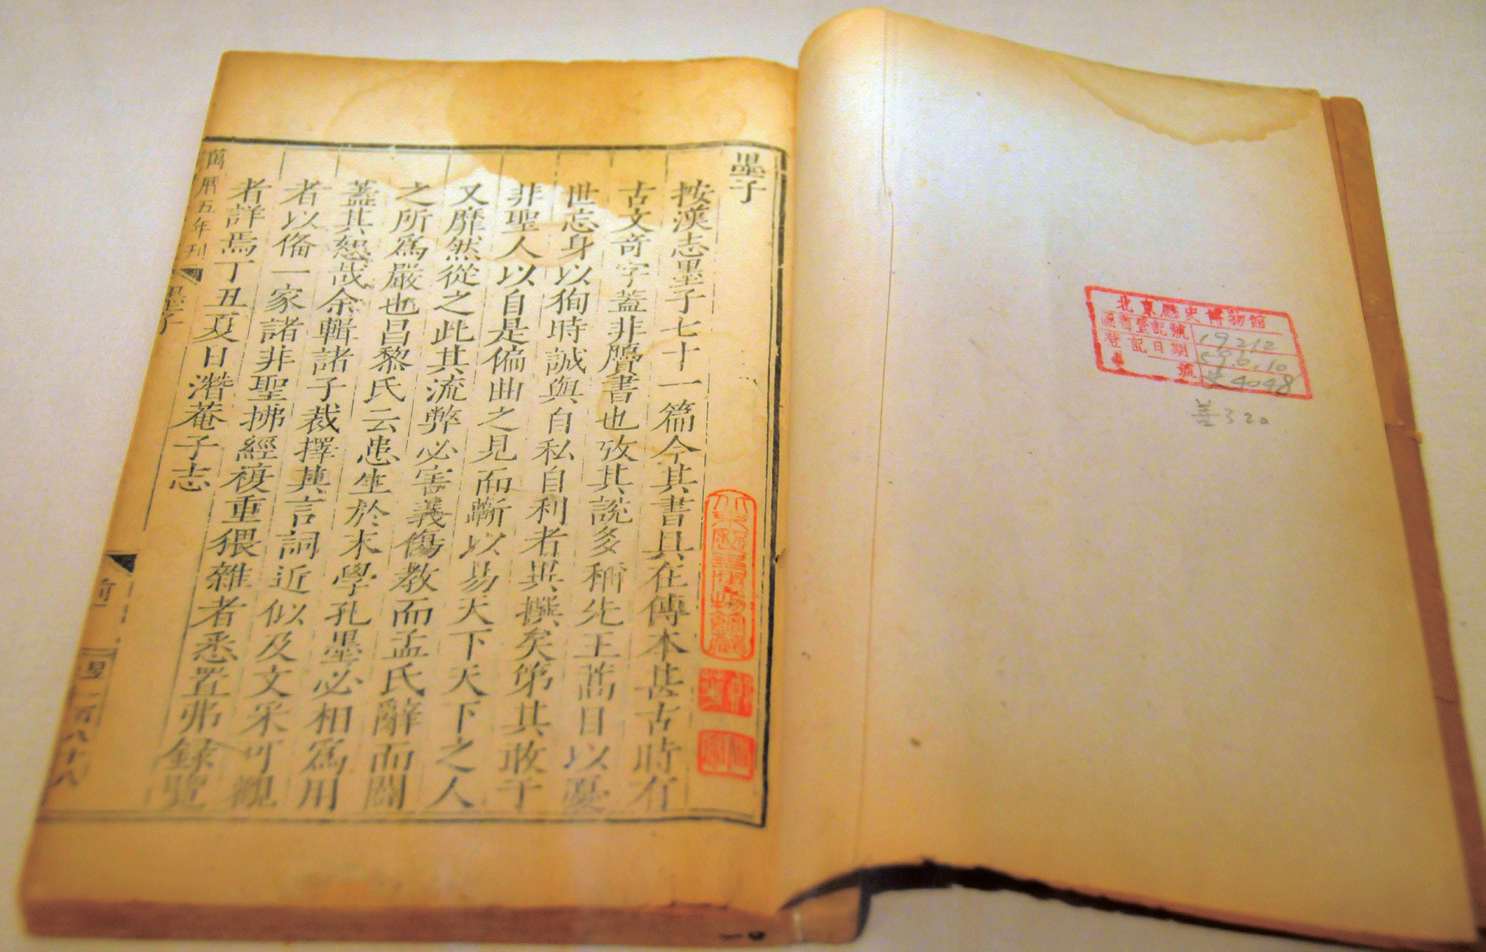 墨子
按漢志墨子七十一篇今其書具在傳本甚古時有
古文奇字蓋非贗書也攷其說多稱先王蒿目以憂
世忘身以狥時誠與自私自利者異撰矣第其敢于
非聖人以自是偏曲之見而斷以易天下天下之人
又靡然從之此其流弊必害義傷教而孟氏辭而闢
之所爲嚴也昌黎氏云患生於末學孔墨必相爲用
蓋其恕哉余輯諸子裁擇其言詞近似及文采可觀
者以俻一家諸非聖拂經複重猥雜者悉置弗錄覽
者詳焉丁丑夏日潛菴子志
萬曆五年刊
墨子
一百八十八
北京歷史博物館
圖書登記號 19212
登記日期 59.6.10
號 史4048
善320